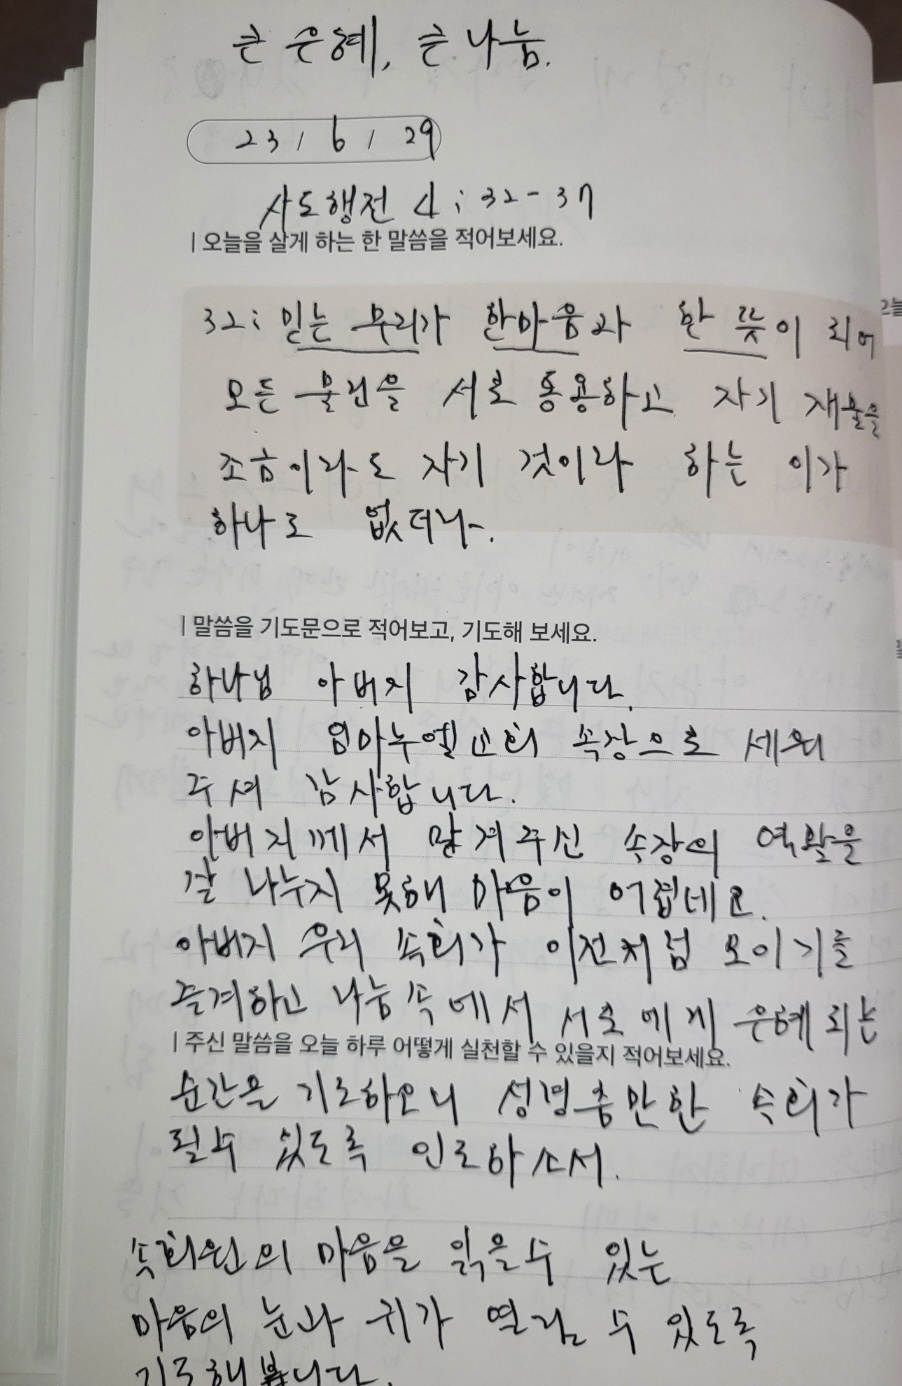 큰 은혜, 큰 나눔.
23 / 6 / 29
사도행전 4 ; 32 - 37
| 오늘을 살게 하는 한 말씀을 적어보세요.
32 ; 믿는 무리가 한마음과 한 뜻이 되어
모든 물건을 서로 통용하고 자기 재물을
조금이라도 자기 것이라 하는 이가
하나도 없더라.
| 말씀을 기도문으로 적어보고, 기도해 보세요.
하나님 아버지 감사합니다.
아버지 임마누엘교회 속장으로 세워
주셔 감사합니다.
아버지께서 맡겨주신 속장의 역활을
잘 나누지 못해 마음이 어렵네요.
아버지 우리 속회가 이전처럼 모이기를
즐겨하고 나눔속에서 서로에게 은혜 되는
| 주신 말씀을 오늘 하루 어떻게 실천할 수 있을지 적어보세요.
순간을 기도하오니 성령충만한 속회가
될수 있도록 인도하소서.
속회원의 마음을 읽을수 있는
마음의 눈과 귀가 열릴 수 있도록
기도해봅니다.